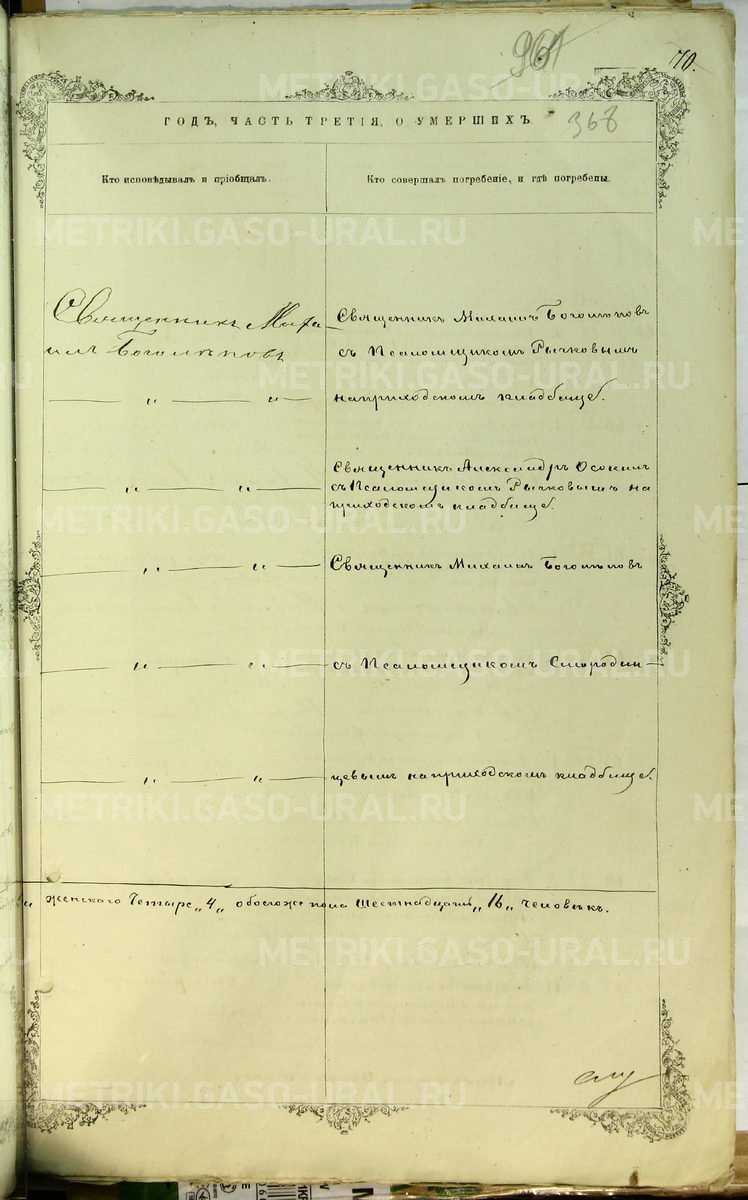 70.
368
ГОДЪ, ЧАСТЬ ТРЕТІЯ, О УМЕРШИХЪ
Кто исповѣдывалъ и пріобщалъ.
Кто совершалъ погребеніе, и гдѣ погребены.
Священникъ Миха-
илъ Боголѣповъ
— „ — „ —
— „ — „ —
— „ — „ —
— „ — „ —
— „ — „ —
Священникъ Михаилъ Боголѣповъ
съ Псаломщикомъ Рычковымъ
на приходскомъ кладбищѣ.
Священникъ Александръ Осокинъ
съ Псаломщикомъ Рычковымъ на
приходскомъ кладбищѣ.
Священникъ Михаилъ Боголѣповъ
съ Псаломщикомъ Смородин-
цевымъ на приходскомъ кладбищѣ.
женскаго Четыре „4„ обоего же пола Шестнадцать „16„ человѣкъ.
METRIKI.GASO-URAL.RU